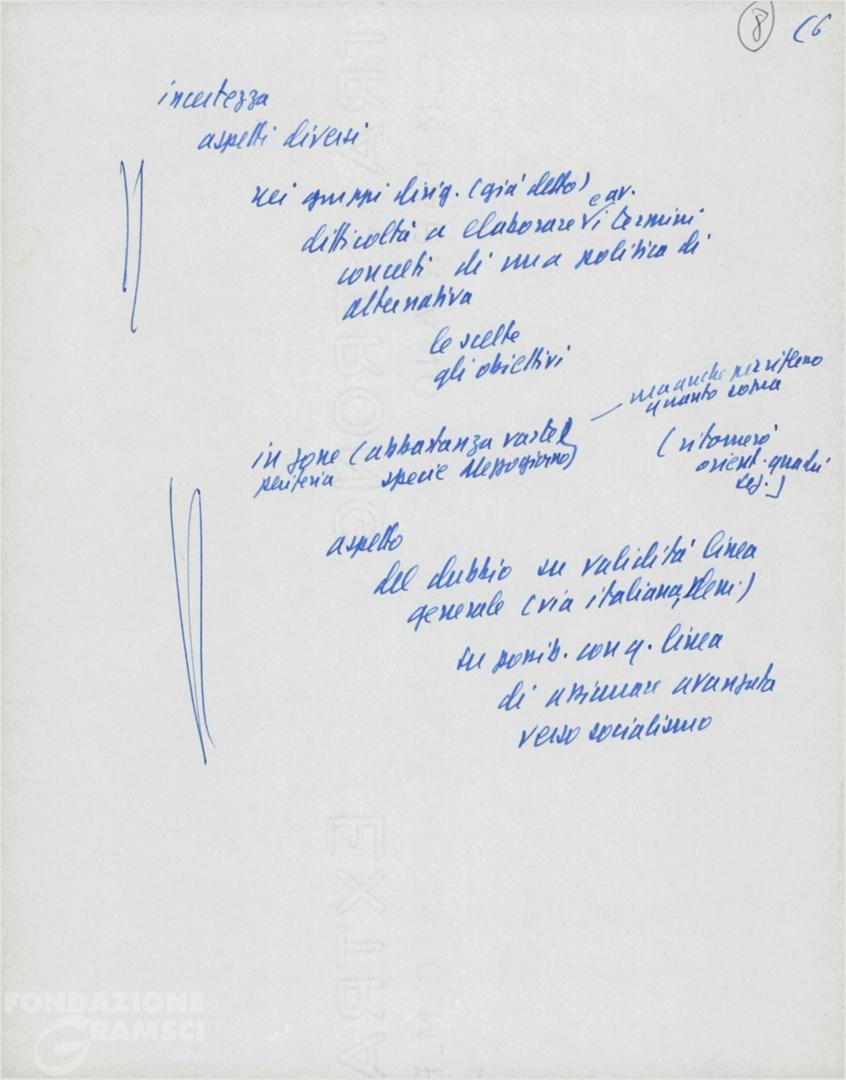 8 (6
incertezza
aspetti diversi
nei gruppi dirig. (già detto)
e av.
difficoltà a elaborare i termini
concreti di una politica di
alternativa
le scelte
gli obiettivi
ma anche per
quanto
in zone (abbastanza vaste
periferia specie Mezzogiorno)
(ritornerò
orient. quadri
seg.)
aspetto
del dubbio su validità linea
generale (via italiana,
su possib. con q. linea
di assicurare avanzata
verso socialismo
FONDAZIONE
GRAMSCI
EXTRA